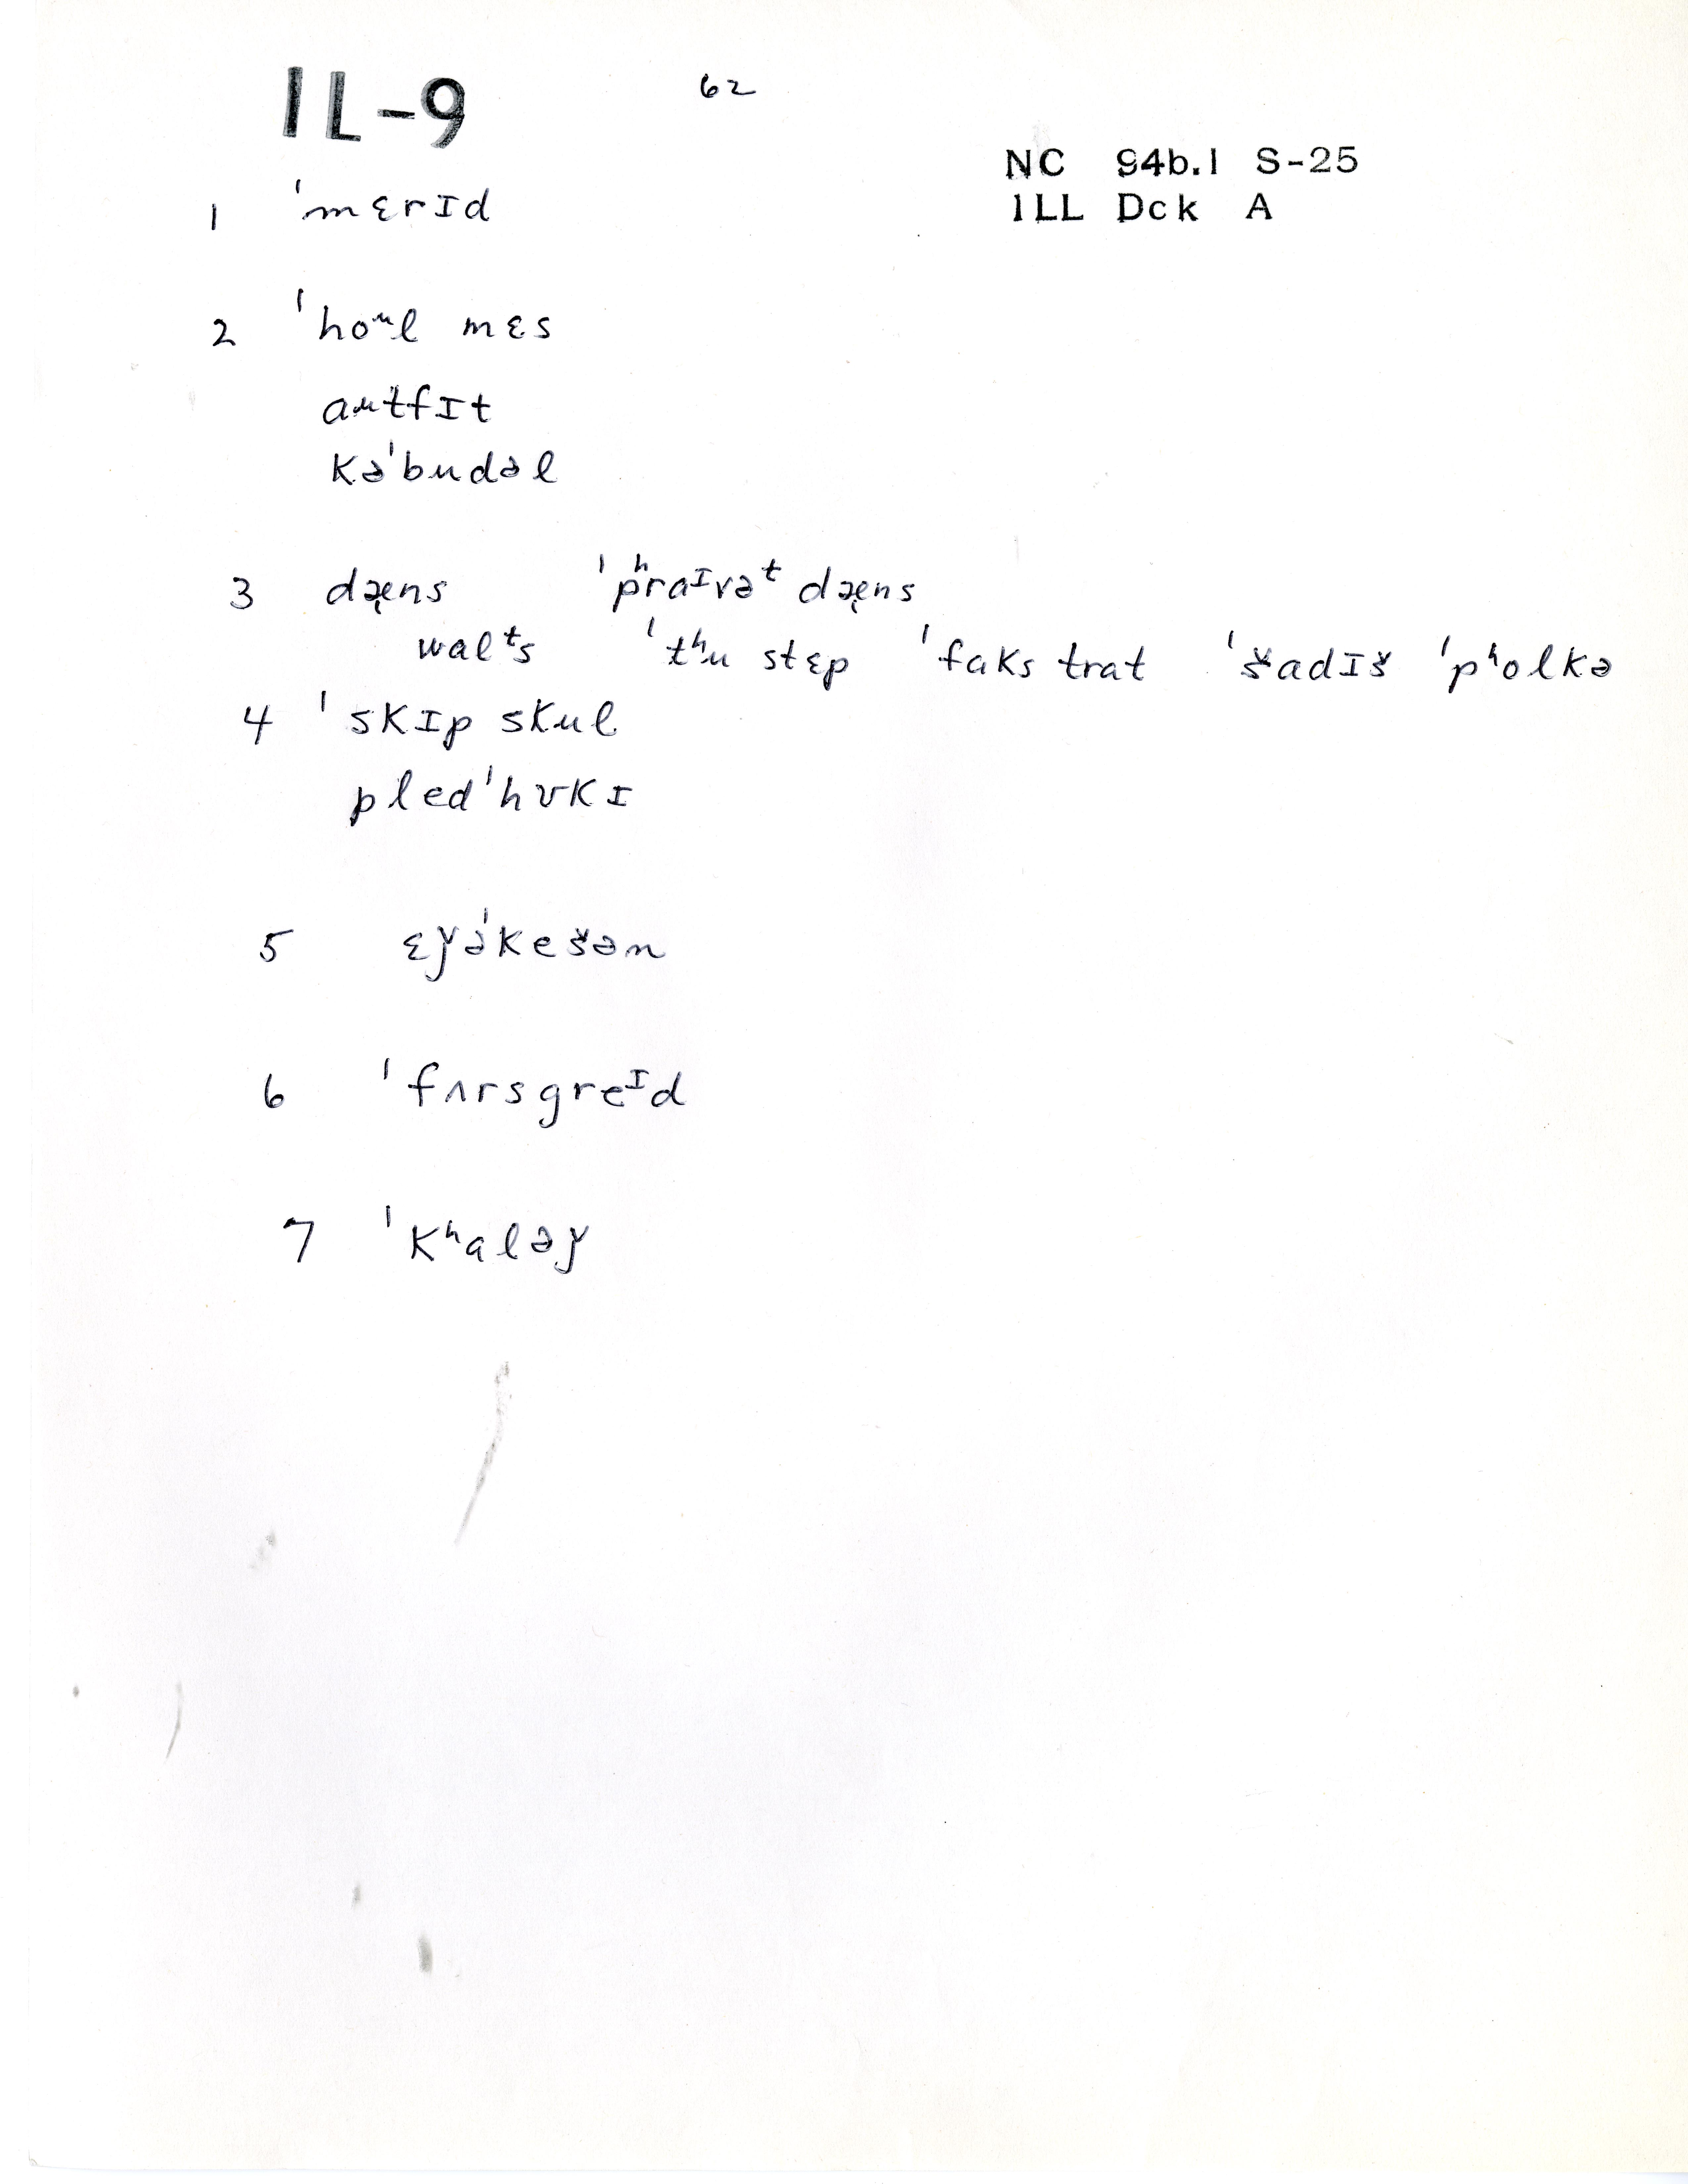 IL-9 62
NC 94b.1 S-25
ILL Dck A
1 ˈmɛrɪd
2 ˈhoᵘl mɛs
autfɪt
kəˈbudəl
3 dæ̨ns ˈpʰraᶦvəᵗ dæ̨ns
walᵗs ˈtʰu stɛp ˈfaks trat ˈšadɪš ˈpʰolkə
4 ˈskɪp skul
pledˈhʊkɪ
5 ɛǰəˈkešən
6 ˈfʌrsgreᶦd
7 ˈkʰaləǰ